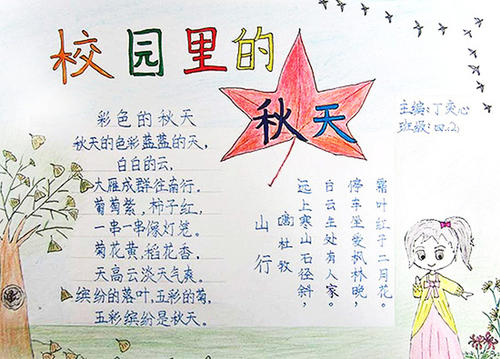 校园里的
秋天
主编:丁奕心
班级:四.2)
彩色的秋天
秋天的色彩蓝蓝的天，
白白的云，
大雁成群往南行。
葡萄紫,柿子红，
一串一串像灯笼。
菊花黄,稻花香，
天高云淡天气爽。
缤纷的落叶,五彩的菊，
五彩缤纷是秋天。
山行
唐杜牧
远上寒山石径斜，
白云生处有人家。
停车坐爱枫林晚，
霜叶红于二月花。